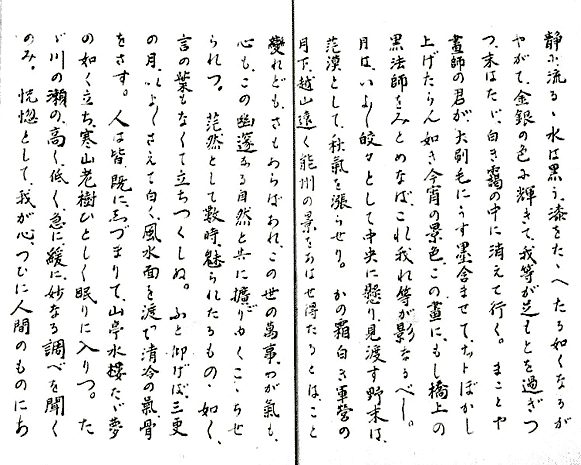 静に流るゝ水は黒う、漆をたゝへたる如くなるが
やがて、金銀の色に輝きて、我等が足もとを過ぎつ
つ、末はたゞ、白き靄の中に消えて行く。まことや
畫師の君が、大刷毛にうす墨含ませて、ちょトぼかし
上げたらん如き今宵の景色、この畫に、もし橋上の
黒法師をみとめなば、これ我れ等が影なるべし。
月は、いよ〱皎々として中央に懸り、見渡す野末は、
茫漠として、秋氣を漲らせり。かの霜白き軍營の
月下、越山遠く能州の景をあはせ得たるとは、こと
變れども、さもあらばあれ、この世の萬事、わが氣も、
心も、この幽邃なる自然と共に擴がりゆくこゝちせ
られつ。茫然として數時、魅られたるものゝ如く、
言の葉もなくて立ちつくしぬ。ふと仰げば、三更
の月、いよ〱さえて白く、風水面を渡つて清冷の氣骨
をさす。人は皆、既に、しづまりて、山亭水樓たゞ夢
の如く立ち、寒山老樹ひとしく眠りに入りつ。た
ゞ川の瀬の、高く、低く、急に緩に、妙なる調べを聞く
のみ。恍惚として、我が心、つひに人間のものにあ